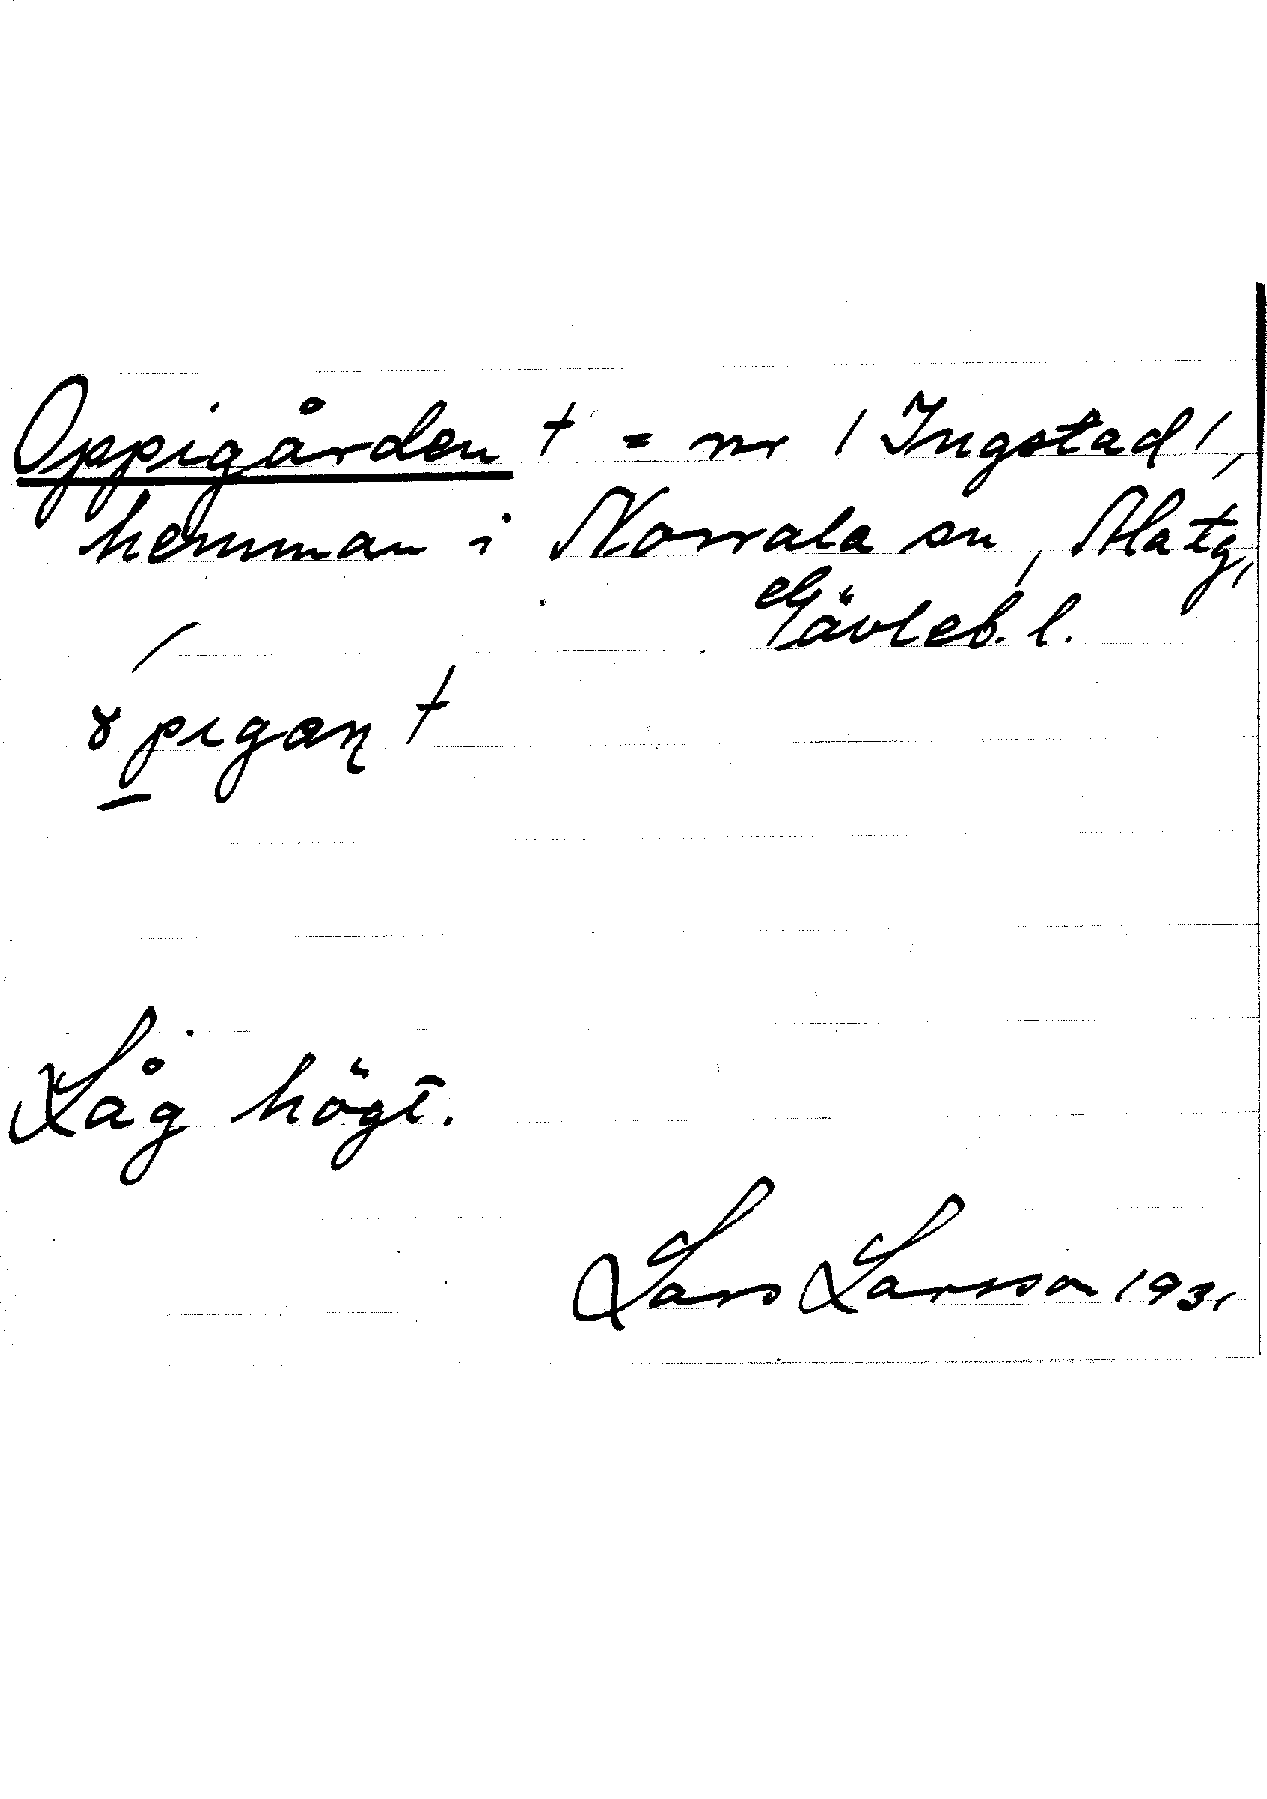 Oppigården † = nr 1 Ingstad 1,
hemman i Norrala sn, Ala tg,
Gävleb. l.
ɣpigaɳ †
Låg högt.
Lars Larsson 1931